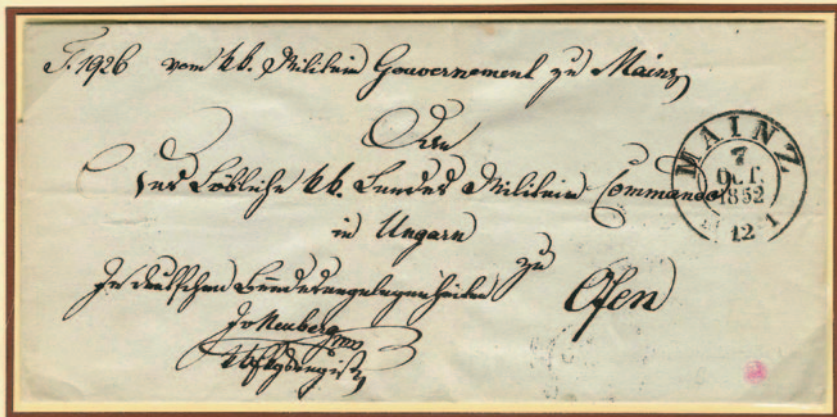 J. 1926 vom kk. Militair Gouvernement zu Mainz
An
das Löbliche kk. Landes Militair Commando
in Ungarn
zu
Ofen
In deutschen Bundesangelegenheiten
MAINZ
7
OCT.
1852
12 1